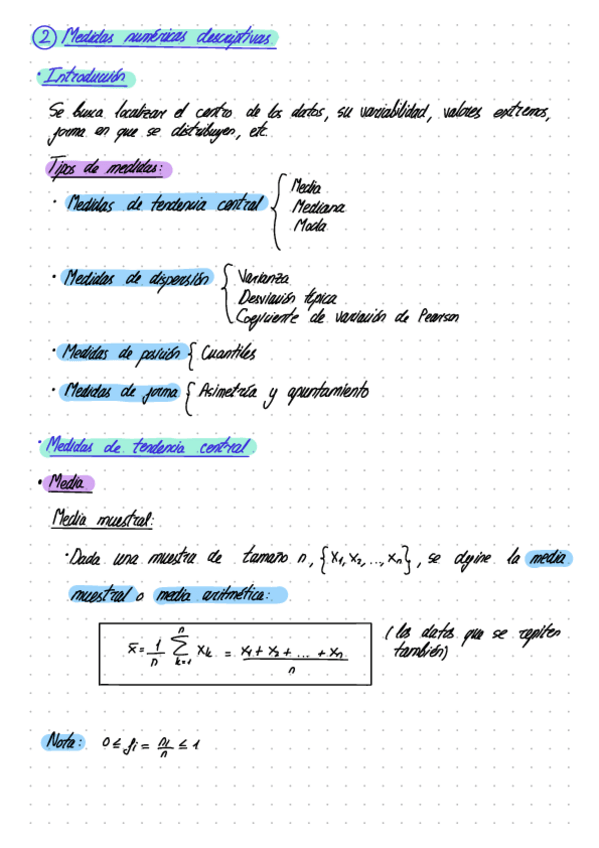 ② Medidas numéricas descriptivas
· Introducción
Se busca localizar el centro de los datos, su variabilidad, valores extremos,
forma en que se distribuyen, etc.
Tipos de medidas:
· Medidas de tendencia central { Media
Mediana
Moda
· Medidas de dispersión { Varianza
Desviación típica
Coeficiente de variación de Pearson
· Medidas de posición { Cuantiles
· Medidas de forma { Asimetría y apuntamiento
· Medidas de tendencia central.
• Media
Media muestral:
· Dada una muestra de tamaño n, {x₁, x₂, ..., xₙ}, se define la media
muestral o media aritmética:
x̄ = 1/n ∑ₖ₌₁ⁿ xₖ = (x₁ + x₂ + ... + xₙ)/n
(los datos que se repiten
también)
Nota: 0 ≤ fi = ni/n ≤ 1